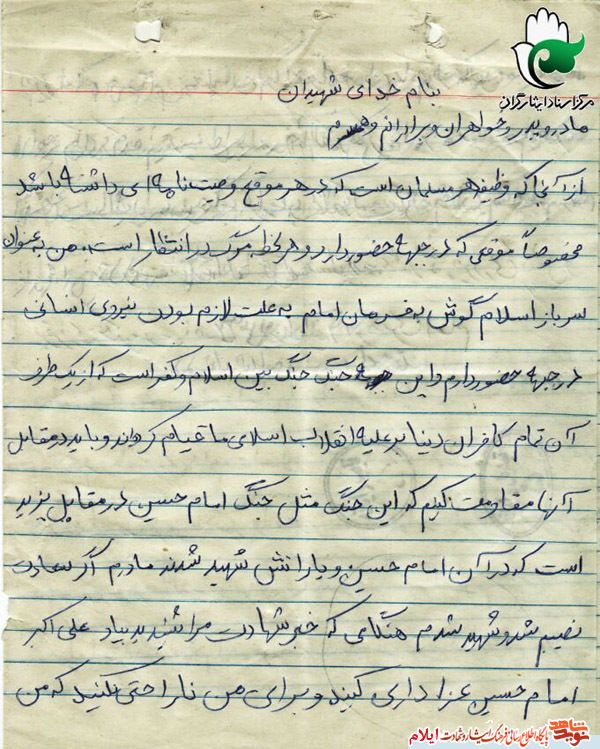 مرکز اسناد ایثارگران
بنام خدای شهیدان
مادر و پدر و خواهران و برادرانم و همسرم
از آنجا که وظیفه هر مسلمان است که در هر موقع وصیت نامه ای داشته باشد
مخصوصاً موقعی که در جبهه حضور دارد و هر لحظه مرگ در انتظار است. من به عنوان
سرباز اسلام گوش به فرمان امام به علت لازم بودن نیروی انسانی
در جبهه حضور دارم و این جنگ جنگ بین اسلام و کفر است که از یک طرف
آن تمام کافران دنیا بر علیه انقلاب اسلامی ما قیام کرده‌اند و باید در مقابل
آنها مقاومت کنیم که این جنگ مثل جنگ امام حسین در مقابل یزید
است که در آن امام حسین و یارانش شهید شدند مادرم اگر سعادت
نصیبم شد و شهید شدم هنگامی که خبر شهادت مرا شنیدید بیاد علی اکبر
امام حسین عزاداری کنید و برای من ناراحتی نکنید که من
نوید شاهد
پایگاه اطلاع رسانی فرهنگ ایثار و شهادت ایلام